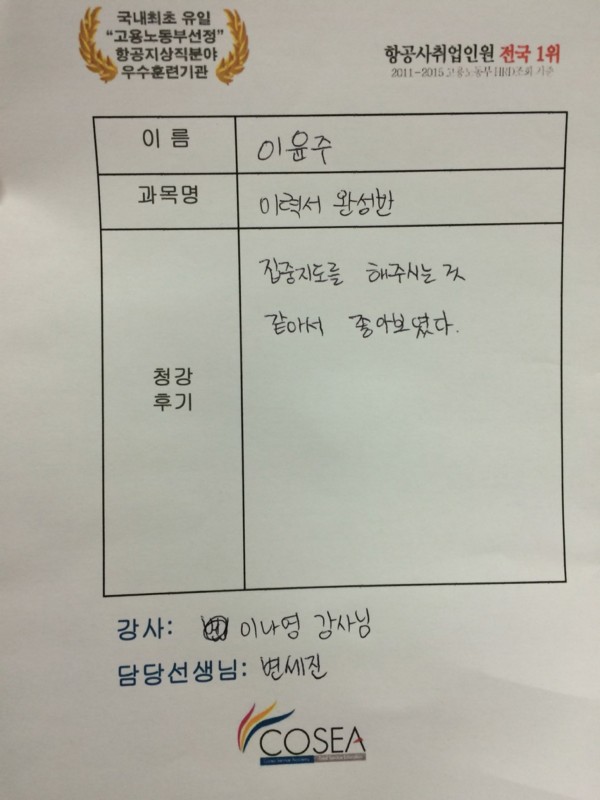 국내최초 유일
“고용노동부선정”
항공지상직분야
우수훈련기관
항공사취업인원 전국 1위
2011~2015 고용노동부 HRD조회 기준
이 름
이윤주
과목명
이력서 완성반
청강
후기
집중지도를 해주시는 것
같아서 좋아보였다.
강사: 이나영 강사님
담당선생님: 변세진
COSEA